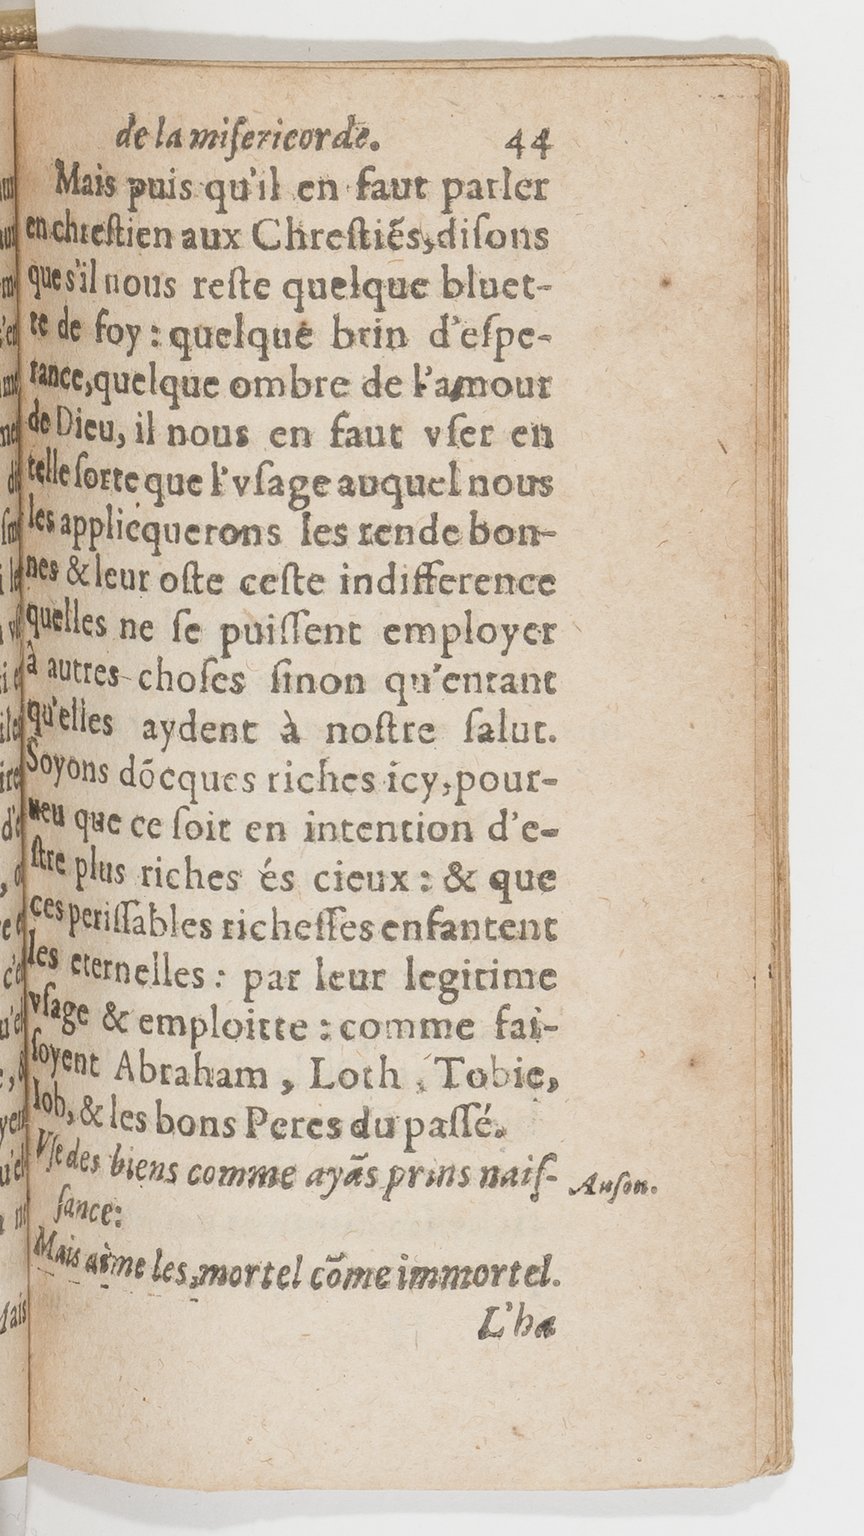 de la miſericorde. 44
Mais puis qu'il en faut parler
en chreſtien aux Chreſtiẽs, diſons
que s'il nous reſte quelque bluet-
te de foy : quelque brin d'eſpe-
rance, quelque ombre de l'amour
de Dieu, il nous en faut vſer en
telle ſorte que l'vſage auquel nous
les applicquerons les rende bon-
nes & leur oſte ceſte indifference
quelles ne ſe puiſſent employer
à autres choſes ſinon qu'entant
qu'elles aydent à noſtre ſalut.
Soyons dõcques riches icy, pour-
ueu que ce ſoit en intention d'e-
ſtre plus riches és cieux : & que
ces periſſables richeſſes enfantent
les eternelles : par leur legitime
vſage & emploitte : comme fai-
ſoyent Abraham , Loth , Tobie,
Iob, & les bons Peres du paſſé.
Vſe des biens comme ayãs prins naiſ-
Auſon.
ſance:
Mais aime les, mortel cõme immortel.
L'ha